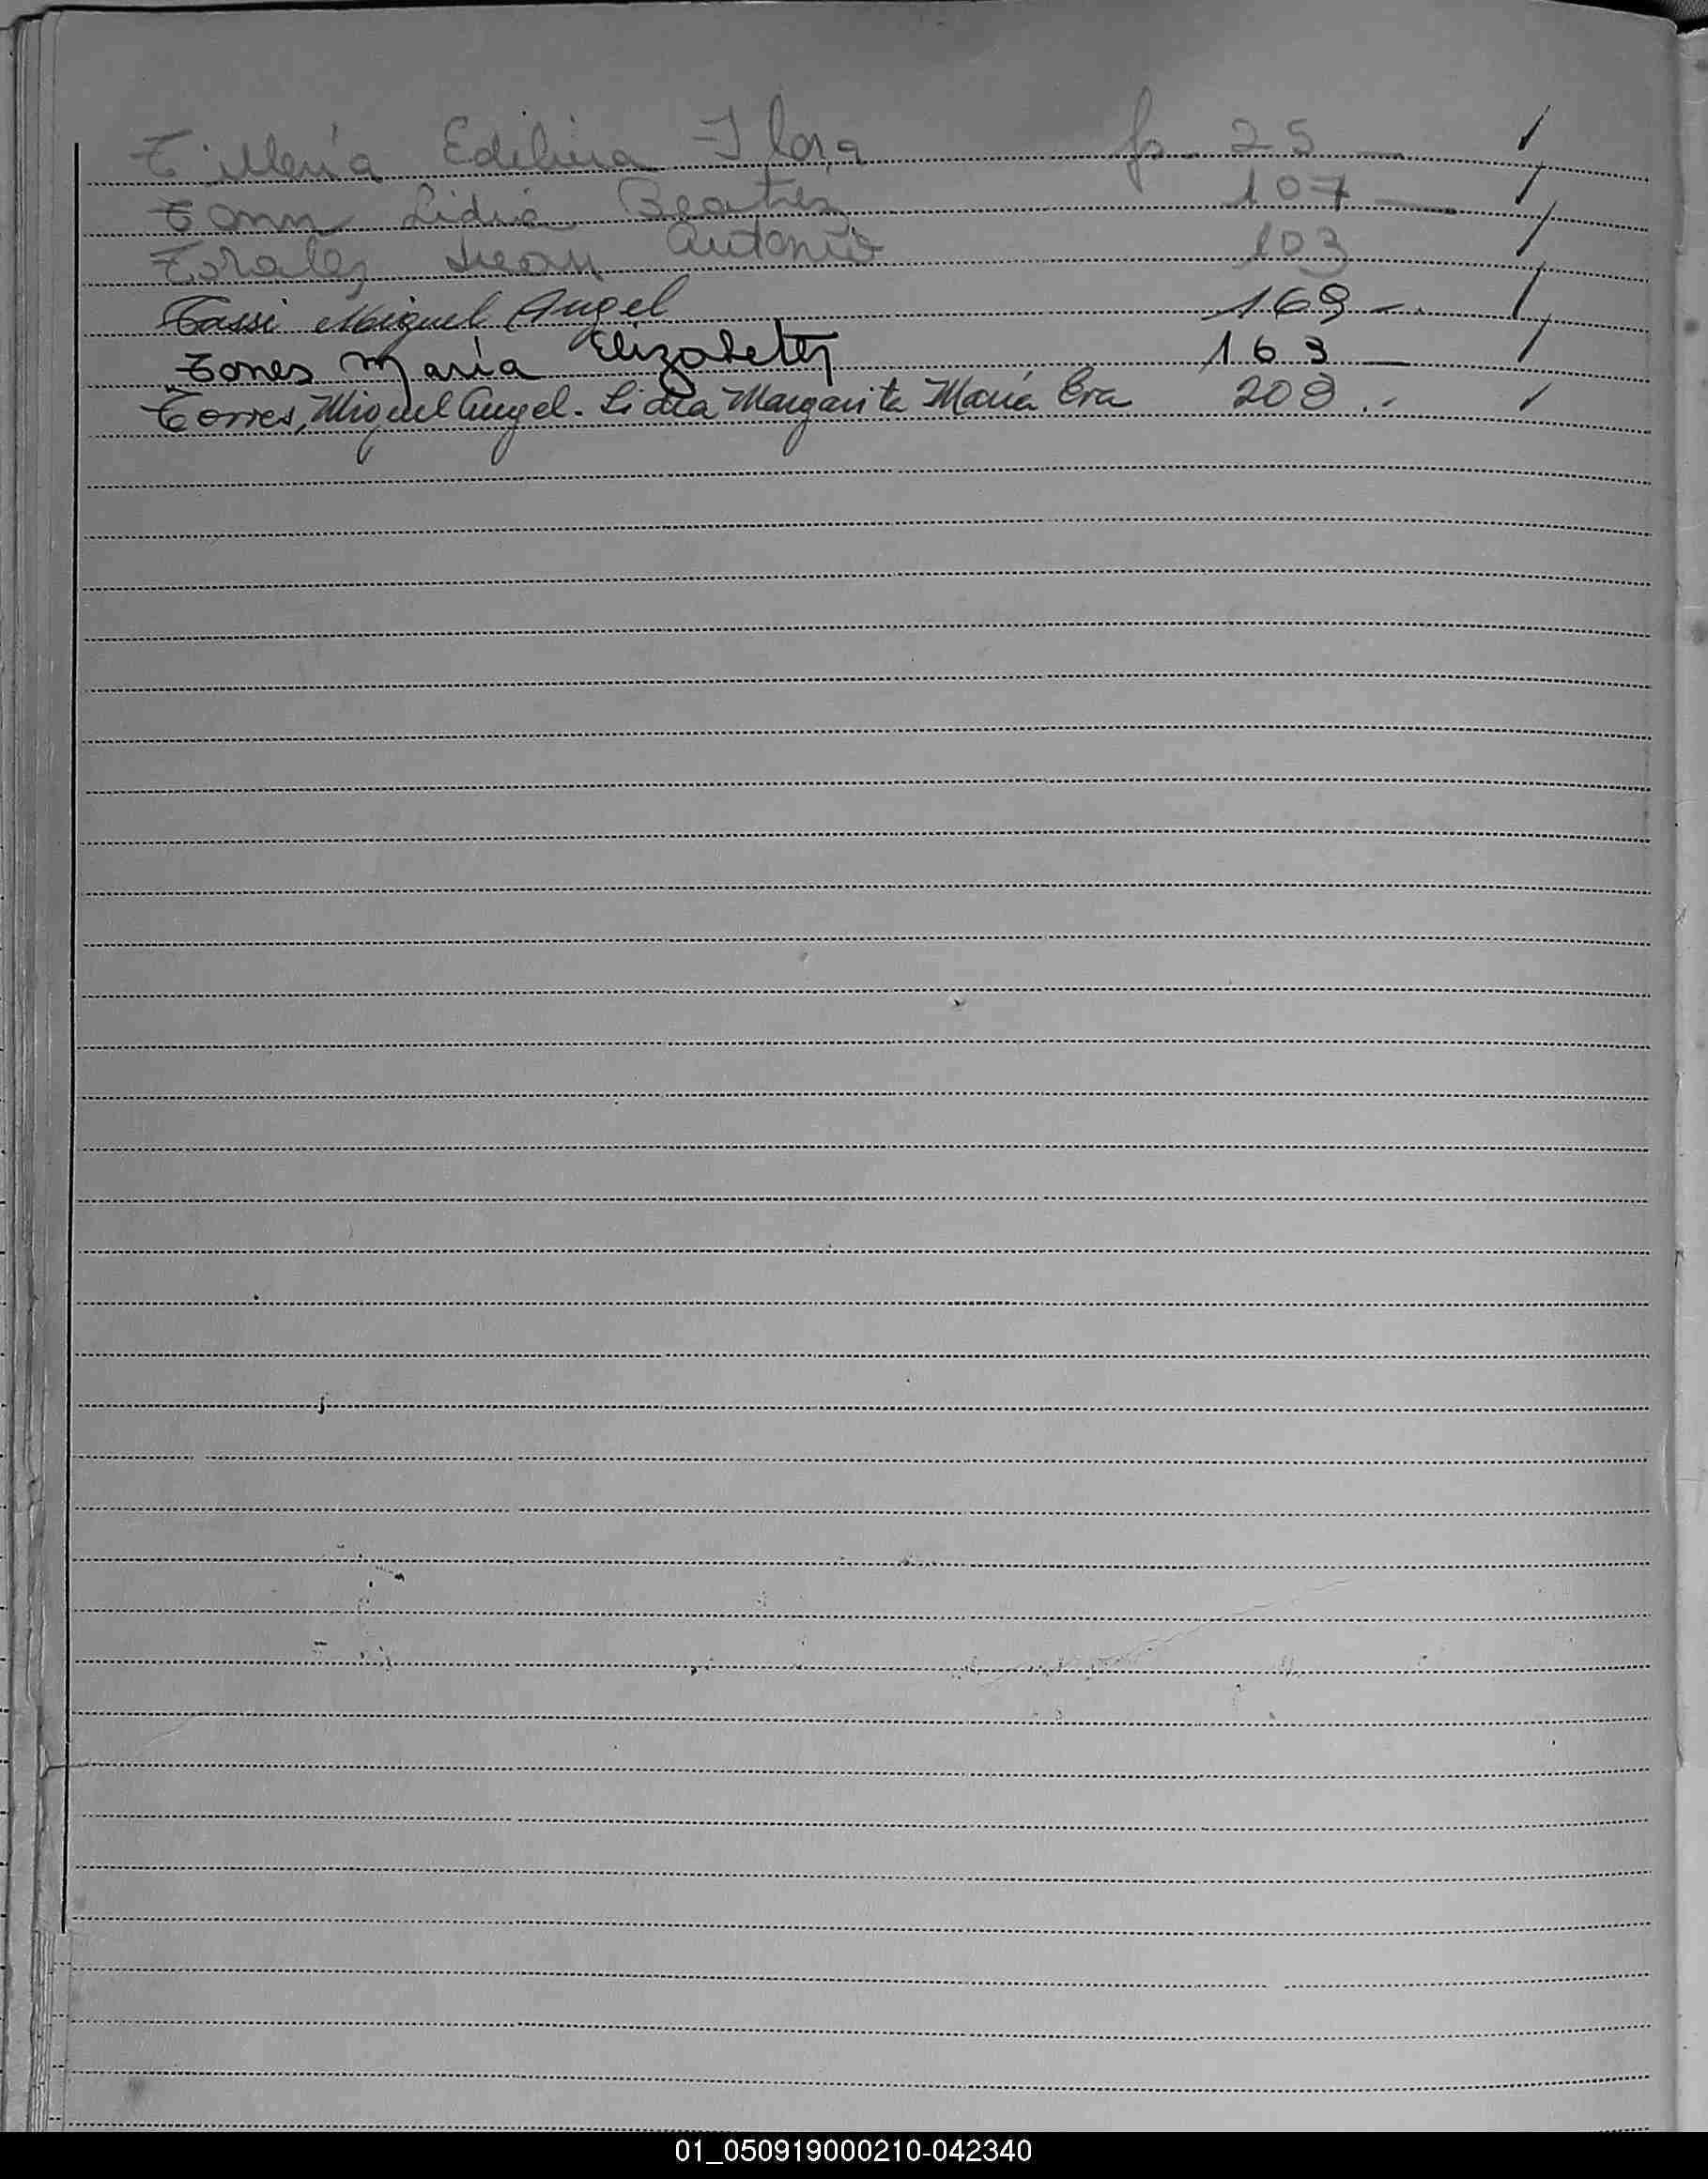 Tillería Edilma Flora fs. 25 —
Tonn Lidia Beatriz 107 —
Torales Juan Antonio 103
Tassi Miguel Angel 169 —.
Torres María Elizabeth 163 —
Torres, Miguel Angel. Lidia Margarita María Eva 209 .-
01_050919000210-042340